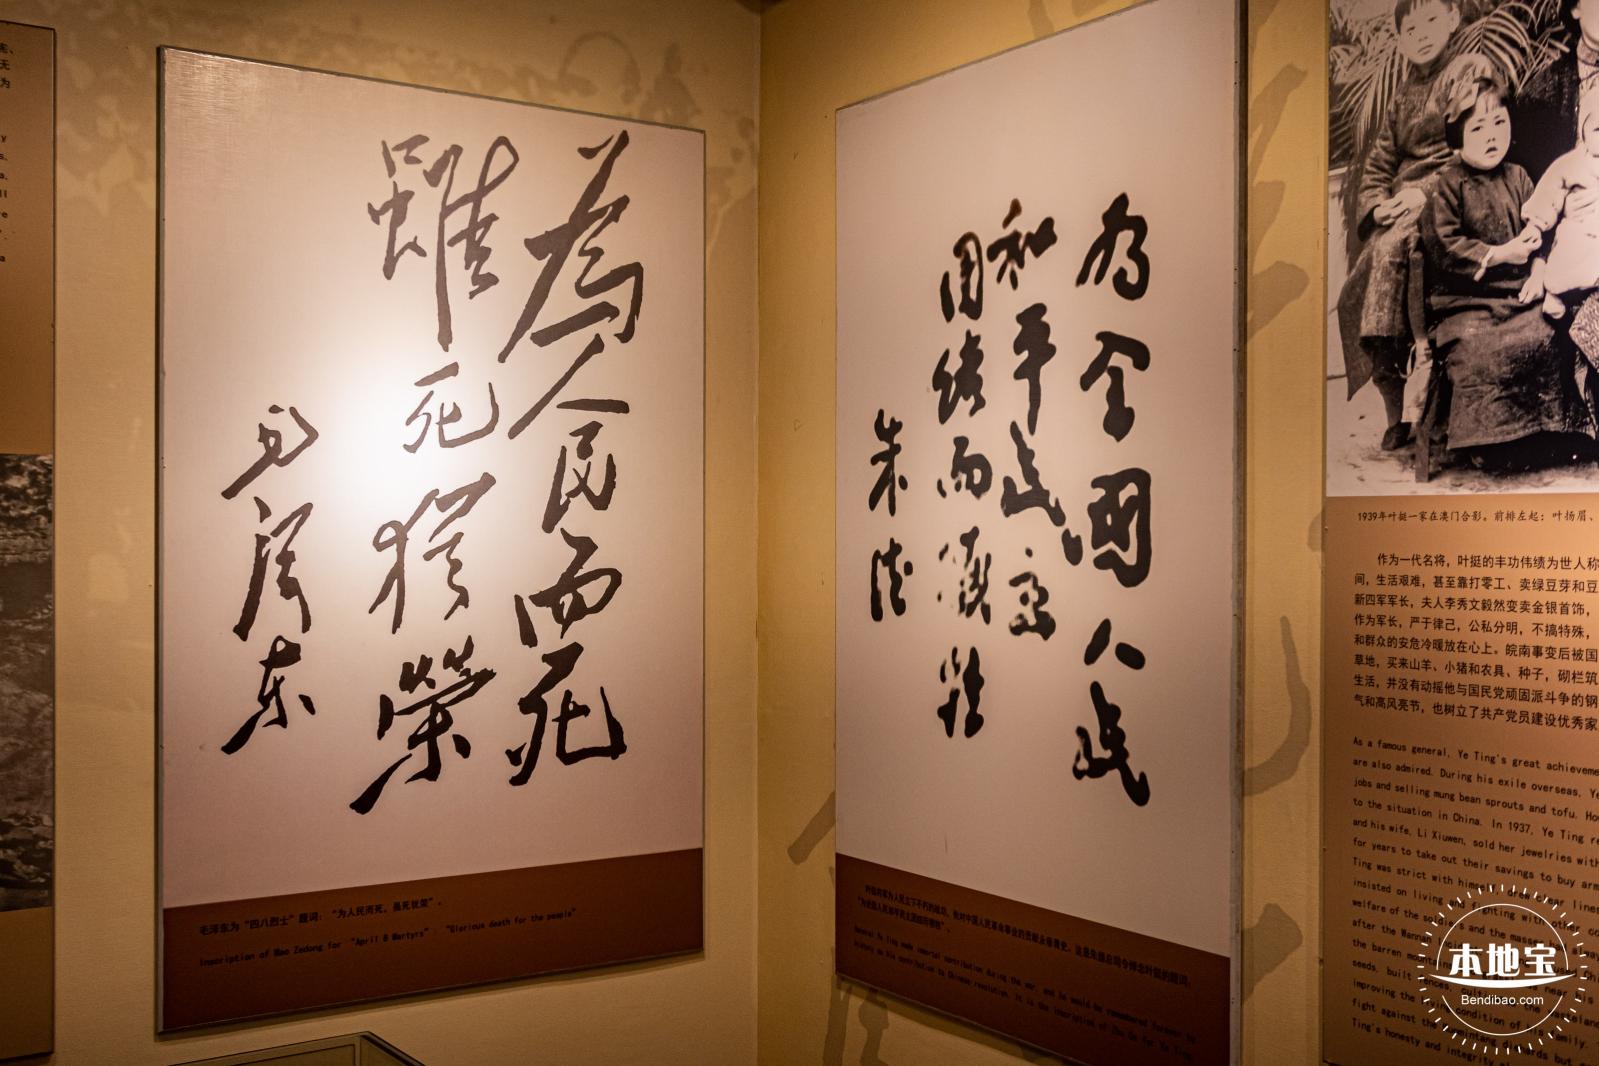 為人民而死
雖死猶榮
毛泽东
毛泽东为“四八烈士”题词：“为人民而死，虽死犹荣”。
Inscription of Mao Zedong for “April 8 Martyrs”: “Glorious death for the people”
为全國人民
和平民主
团结而犧牲
朱德
叶挺将军为人民立下不朽的功功
“为全国人民和平民主团结而牺牲”。
General Ye Ting made immortal contribution during the war, and he would be remembered forever by
history on his contribution to Chinese revolution. It is the inscription of Zhu De for Ye Ting.
1939年叶挺一家在澳门合影。前排左起：叶扬眉、
作为一代名将，叶挺的丰功伟绩为世人称
间，生活艰难，甚至靠打零工、卖绿豆芽和豆
新四军军长，夫人李秀文毅然变卖金银首饰，
作为军长，严于律己，公私分明，不搞特殊，
和群众的安危冷暖放在心上。皖南事变后被国
草地，买来山羊、小猪和农具、种子，砌栏筑
生活，并没有动摇他与国民党顽固派斗争的钢
气和高风亮节，也树立了共产党员建设优秀家
As a famous general, Ye Ting's great achieveme
are also admired. During his exile overseas, Ye
jobs and selling mung bean sprouts and tofu. Ho
to the situation in China. In 1937, Ye Ting re
and his wife, Li Xiuwen, sold her jewelries with
for years to take out their savings to buy arm
Ting was strict with himself, drew clear lines
insisted on living and fighting with other co
welfare of the soldiers and the masses
after the Wannan
the barren mountain near his
seeds, built fences,
improving the living condition of his family.
fight against the diehards but
Ting's honesty and integrity
本地宝
Bendibao.com